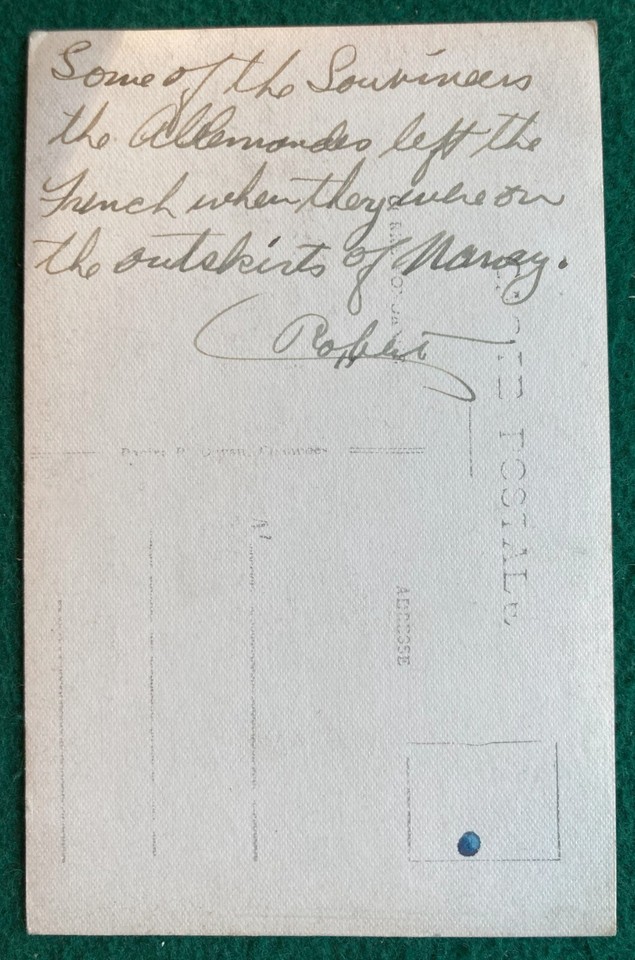 Some of the Souvineers
the Allemandes left the
French when they were on
the outskirts of Nancy.
Robert
CARTE POSTALE
ADRESSE